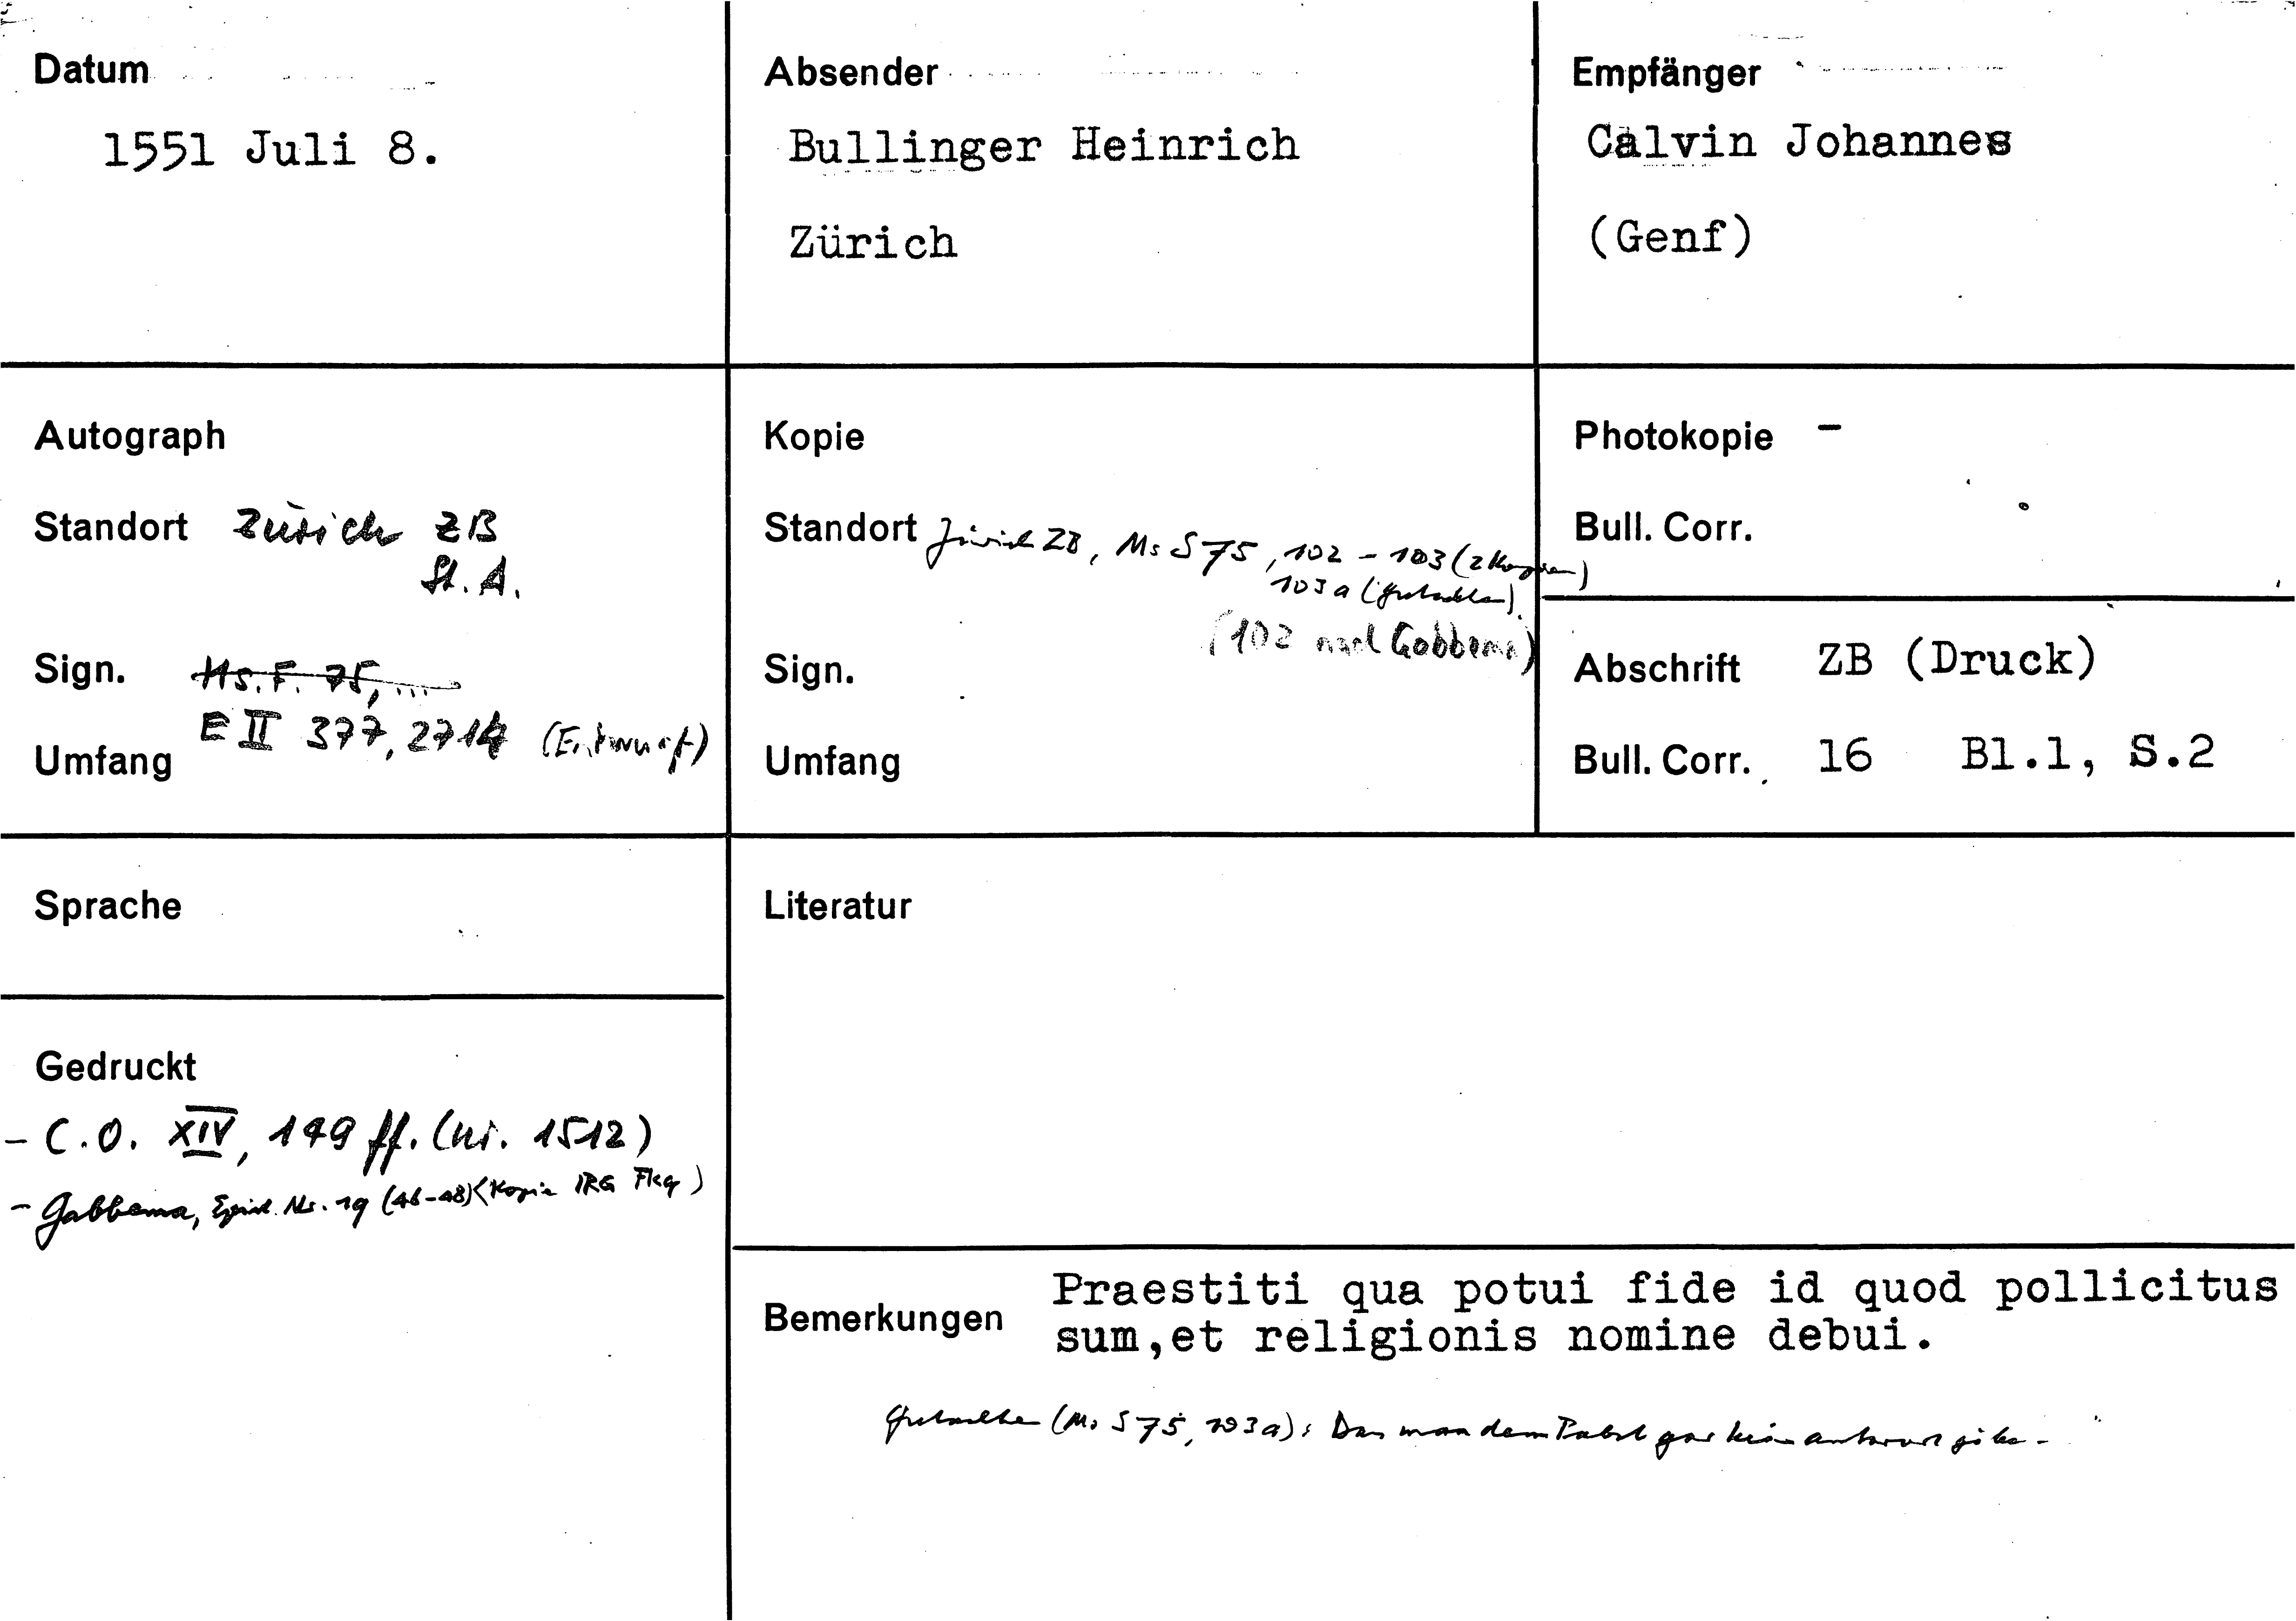 Datum
1551 Juli 8.
Absender
Bullinger Heinrich
Zürich
Empfänger
Calvin Johannes
(Genf)
Autograph
Standort Zürich ZB
St. A.
Sign. Hs. F. 75, ...
E II 377, 2714 (Entwurf)
Umfang
Kopie
Standort Zürich ZB, Ms S 75, 102 - 103 (2 Kopien)
103a (Gutachten)
(102 nach Gabbema)
Sign.
Umfang
Photokopie -
Bull. Corr.
Abschrift ZB (Druck)
Bull. Corr. 16 Bl.1, S.2
Sprache
Gedruckt
- C.O. XIV, 149 ff. (Nr. 1512)
- Gabbema, Epist. Nr. 19 (46-48) (Kopie IRG
Literatur
Bemerkungen Praestiti qua potui fide id quod pollicitus
sum,et religionis nomine debui.
Gutachten (Ms S 75, 103a): Das man dem Pabst gar kein antwurt gäbe -